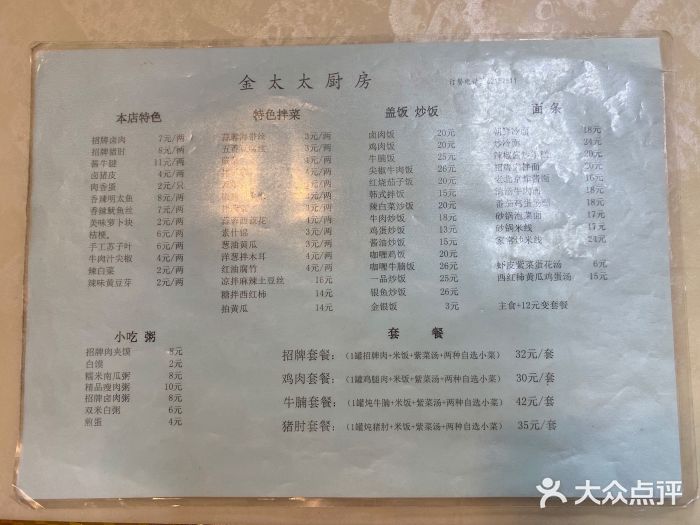 金太太厨房
本店特色
招牌卤肉 7元/两
招牌猪肘 8元/两
酱牛腱 11元/两
卤猪皮 4元/两
肉香蛋 2元/只
香辣明太鱼 8元/两
香辣鱿鱼丝 7元/两
美味萝卜块 2元/两
桔梗 6元/两
手工苏子叶 6元/两
牛肉汁尖椒 4元/两
辣白菜 2元/两
辣味黄豆芽 2元/两
特色拌菜
3元/两
3元/两
4元/两
4元/两
4元/两
4元/两
蒜蓉西蓝花 4元/两
素什锦 3元/两
葱油黄瓜 3元/两
洋葱拌木耳 4元/两
红油腐竹 4元/两
凉拌麻辣土豆丝 16元
糖拌西红柿 14元
拍黄瓜 14元
盖饭 炒饭
卤肉饭 20元
鸡肉饭 20元
牛腩饭 25元
尖椒牛肉饭 26元
红烧茄子饭 20元
韩式拌饭 15元
辣白菜炒饭 16元
牛肉炒饭 18元
鸡蛋炒饭 13元
酱油炒饭 15元
咖喱鸡饭 20元
咖喱牛腩饭 26元
一品炒饭 25元
银鱼炒饭 26元
金银饭 3元
面条
朝鲜冷面 18元
炒冷面 24元
老北京炸酱面
番茄鸡蛋汤面
砂锅泡菜面 17元
砂锅米线 17元
家常炒米线 24元
虾皮紫菜蛋花汤 6元
西红柿黄瓜鸡蛋汤 15元
主食+12元变套餐
小吃 粥
招牌肉夹馍 8元
白馍 2元
糯米南瓜粥 8元
精品瘦肉粥 10元
招牌卤肉粥 8元
双米白粥 6元
煎蛋 4元
套餐
招牌套餐：(1罐招牌肉+米饭+紫菜汤+两种自选小菜) 32元/套
鸡肉套餐：(1罐鸡腿肉+米饭+紫菜汤+两种自选小菜) 30元/套
牛腩套餐：(1罐炖牛腩+米饭+紫菜汤+两种自选小菜) 42元/套
猪肘套餐：(1罐炖猪肘+米饭+紫菜汤+两种自选小菜) 35元/套
大众点评